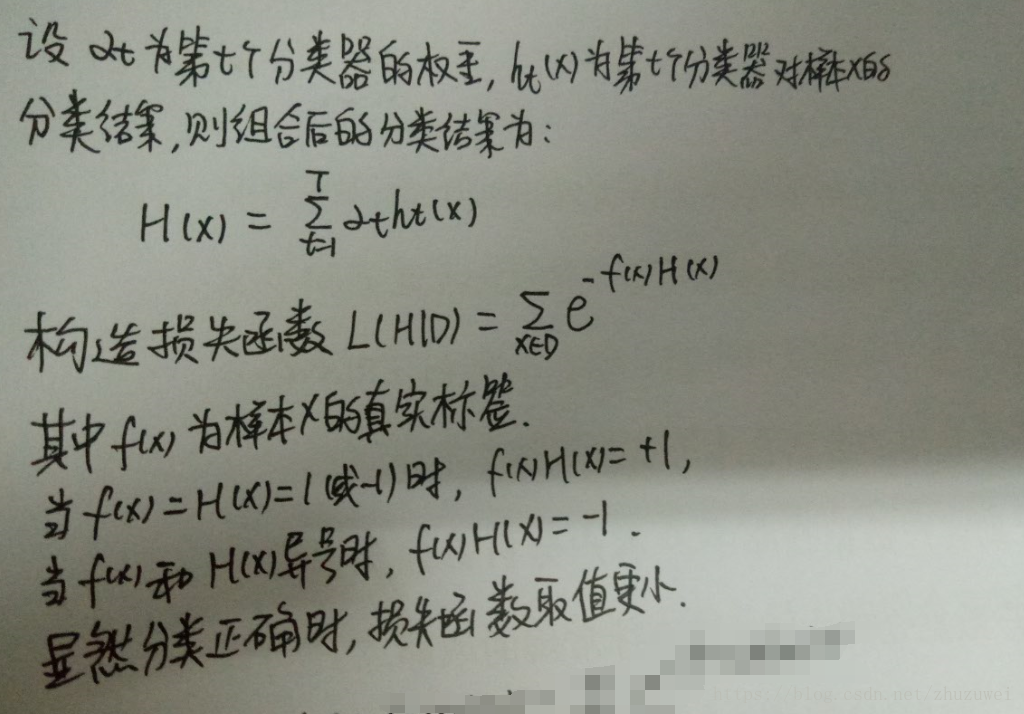 设 αt 为第t个分类器的权重, ht(x)为第t个分类器对样本x的
分类结果,则组合后的分类结果为:
H(x) = \sum_{t=1}^{T} αtht(x)
构造损失函数 L(H|D) = \sum_{x∈D} e^{-f(x)H(x)}
其中f(x) 为样本x的真实标签.
当 f(x)=H(x)=1(或-1)时, f(x)H(x)=+1,
当f(x)和H(x)异号时, f(x)H(x)=-1.
显然分类正确时,损失函数取值更小.
https://blog.csdn.net/zhuzuwei